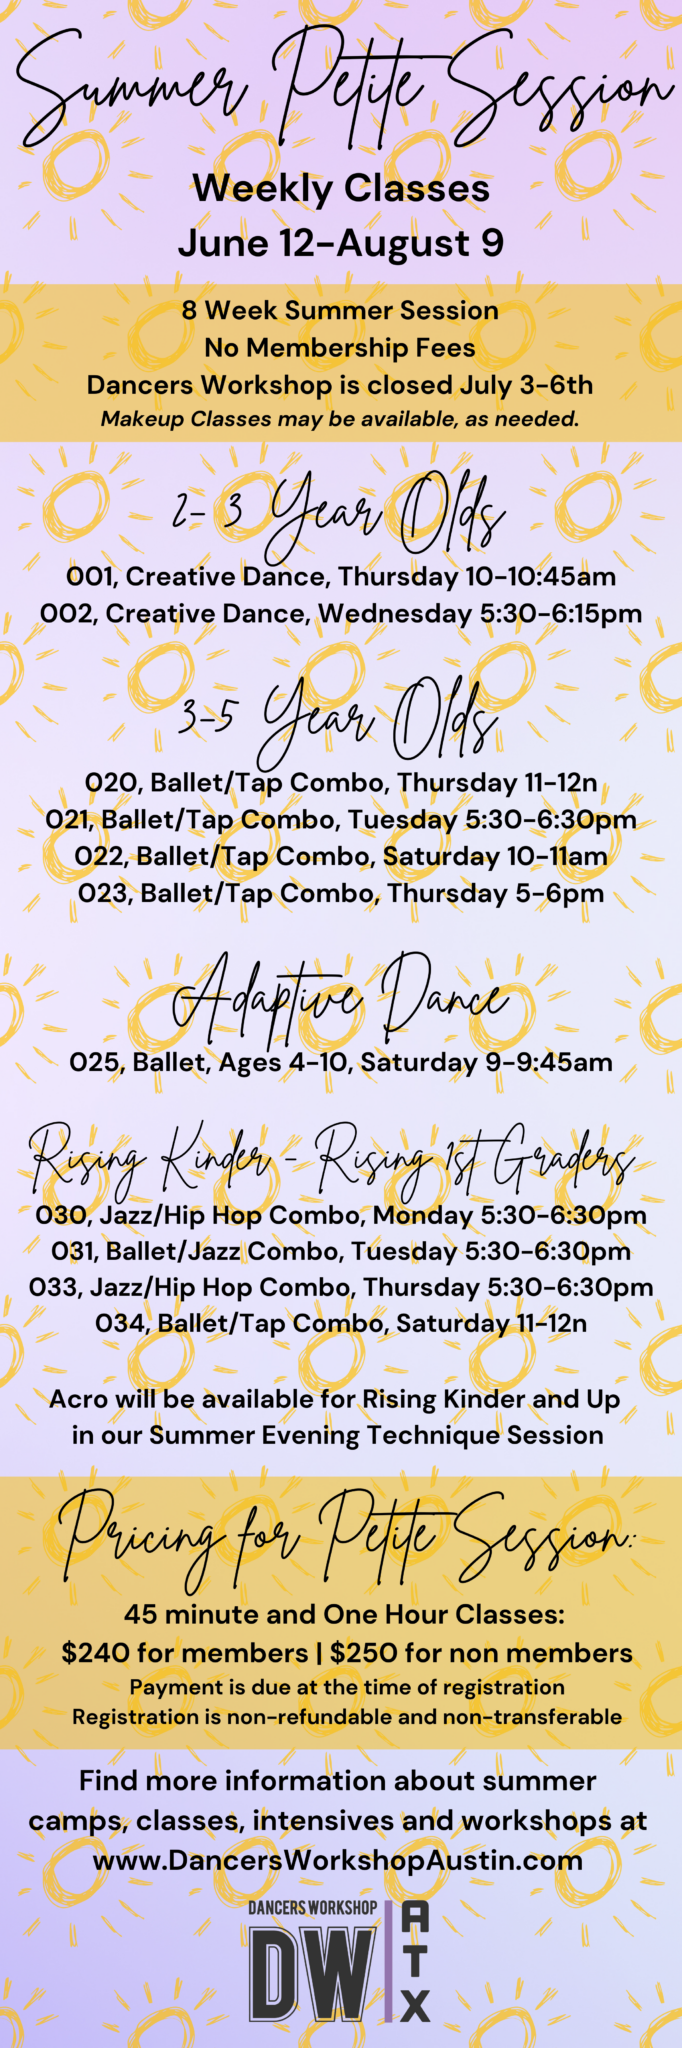 Summer Petite Session
Weekly Classes
June 12-August 9
8 Week Summer Session
No Membership Fees
Dancers Workshop is closed July 3-6th
Makeup Classes may be available, as needed.
2-3 Year Olds
001, Creative Dance, Thursday 10-10:45am
002, Creative Dance, Wednesday 5:30-6:15pm
3-5 Year Olds
020, Ballet/Tap Combo, Thursday 11-12n
021, Ballet/Tap Combo, Tuesday 5:30-6:30pm
022, Ballet/Tap Combo, Saturday 10-11am
023, Ballet/Tap Combo, Thursday 5-6pm
Adaptive Dance
025, Ballet, Ages 4-10, Saturday 9-9:45am
Rising Kinder - Rising 1st Graders
030, Jazz/Hip Hop Combo, Monday 5:30-6:30pm
031, Ballet/Jazz Combo, Tuesday 5:30-6:30pm
033, Jazz/Hip Hop Combo, Thursday 5:30-6:30pm
034, Ballet/Tap Combo, Saturday 11-12n
Acro will be available for Rising Kinder and Up
in our Summer Evening Technique Session
Pricing for Petite Session:
45 minute and One Hour Classes:
$240 for members | $250 for non members
Payment is due at the time of registration
Registration is non-refundable and non-transferable
Find more information about summer
camps, classes, intensives and workshops at
www.DancersWorkshopAustin.com
DANCERS WORKSHOP
DW
ATX